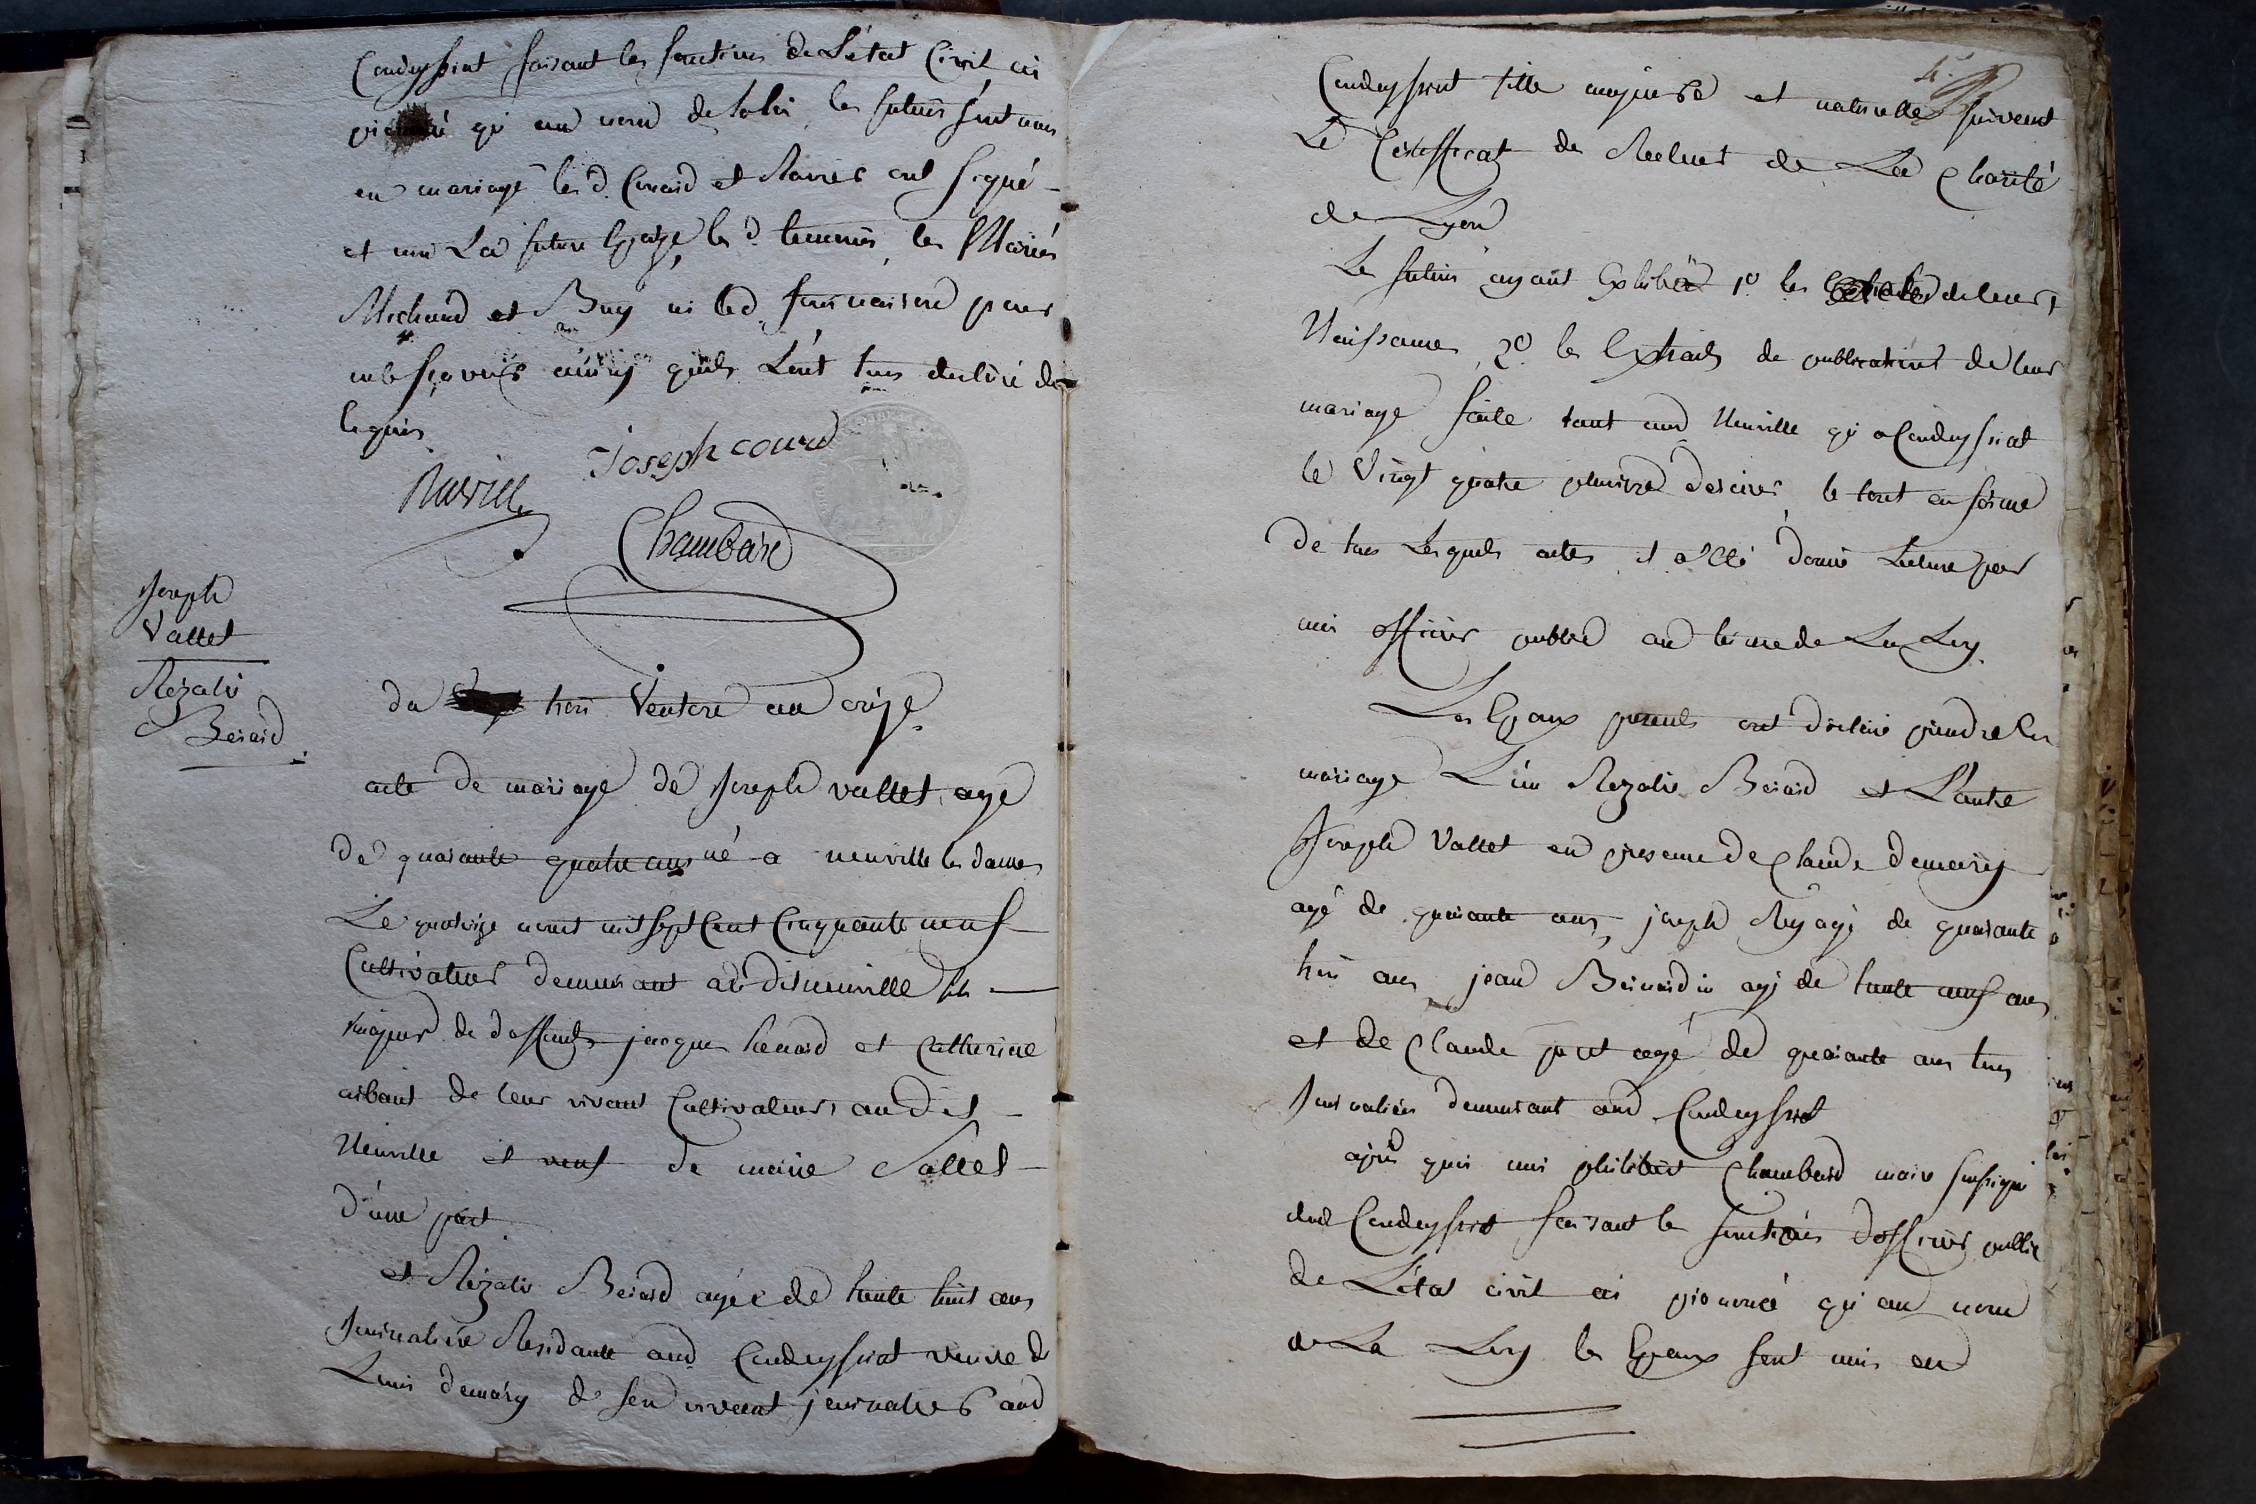 Condeyssiat faisant les fonctions de L'état Civil ai
qu'au nom de La loi les futurs sont unis
en mariage les d. Conard et Ravier ont signé
et non La future Epoize, les d. temoins, les Mariés
Michaud et Buy ni led. pour
ne sçavoir ainsy quils L'ont tous declaré de
le quis
Joseph courd
Chambard
Joseph
Vallet
Rozalie
Berard
du trois Ventose an onze
acte de mariage de Joseph vallet, agé
de quarante quatre ans né a neuville les dames
Le quatorze aout mil sept Cent Cinquante neuf
Cultivateur demeurant audit neuville fils
majeur de deffunts jacques et Catherine
de leur vivant Cultivateurs audit
Neuville et veuf de marie Sallet
d'une part
et Rozalie Berard agée de trente huit ans
Journaliere Residante aud Condeyssiat veuve de
Louis demary de son vivant journalier aud
4.
Condeyssiat fille majeure et naturelle suivant
Le Certifficat de de La Charité
de Lyon
Les futurs ayant Exhibé 1º les de leurs
Naissances, 2º les Extraits de publications de leur
mariage faite tant aud Neuville qu'a Condeyssiat
le Vingt quatre pluviose dernier, le tout en forme
de tous Lesquels actes il a été donné Lecture par
moi officier public aud terme de La Loy
Les Epoux presents ont declaré prendre En
mariage L'un Rozalie Berard et L'autre
Joseph Vallet en presence de Claude demary
agé de quarante ans, joseph Rey agé de quarante
trois ans jean Bernardin agé de trente neuf ans
et de Claude agé de quarante ans tous
Journaliers demeurant aud Condeyssiat
après quoi moi philibert Chambard maire soussigné
dud Condeyssiat faisant les fonctions d'officier public
de L'état civil ai prononcé qu'au nom
de La Loy les Epoux sont unis en